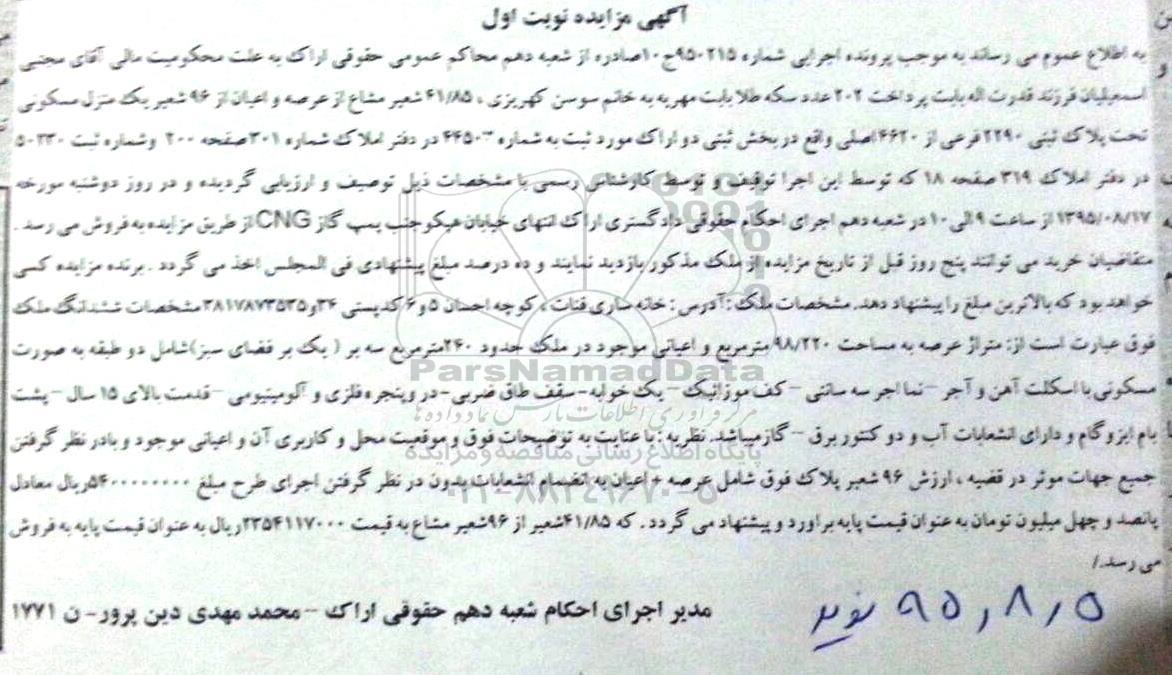 آگهی مزایده نوبت اول
به اطلاع عموم می رساند به موجب پرونده اجرایی شماره ۹۵۰۲۱۵ج۱۰صادره از شعبه دهم محاکم عمومی حقوقی اراک به علت محکومیت مالی آقای مجتبی
اسمعیلیان فرزند قدرت اله بابت پرداخت ۲۰۲ عدد سکه طلا بابت مهریه به خانم سوسن کهریزی ، ۴۱/۸۵ شعیر مشاع از عرصه و اعیان از ۹۶ شعیر یک منزل مسکونی
تحت پلاک ثبتی ۲۲۹۰ فرعی از ۴۶۲۰اصلی واقع در بخش ثبتی دو اراک مورد ثبت به شماره ۴۴۵۰۳ در دفتر املاک شماره ۳۰۱صفحه ۲۰۰ وشماره ثبت ۵۰۲۳۰
در دفتر املاک ۳۱۹ صفحه ۱۸ که توسط این اجرا توقیف و توسط کارشناس رسمی با مشخصات ذیل توصیف و ارزیابی گردیده و در روز دوشنبه مورخه
۱۳۹۵/۰۸/۱۷ از ساعت ۹ الی ۱۰ در شعبه دهم اجرای احکام حقوقی دادگستری اراک انتهای خیابان هپکو جنب پمپ گاز CNG از طریق مزایده به فروش می رسد .
متقاضیان خرید می توانند پنج روز قبل از تاریخ مزایده از ملک مذکور بازدید نمایند و ده درصد مبلغ پیشنهادی فی المجلس اخذ می گردد . برنده مزایده کسی
خواهد بود که بالاترین مبلغ را پیشنهاد دهد. مشخصات ملک : آدرس : خانه سازی قنات ، کوچه احسان ۵ و ۶ کدپستی ۳۴و۳۸۱۷۸۷۳۵۳۵ مشخصات ششدانگ ملک
فوق عبارت است از: متراژ عرصه به مساحت ۹۸/۲۲۰ مترمربع و اعیانی موجود در ملک حدود ۲۴۰مترمربع سه بر ( یک بر فضای سبز)شامل دو طبقه به صورت
مسکونی با اسکلت آهن و آجر – نما اجر سه سانتی – کف موزائیک – یک خوابه- سقف طاق ضربی- در وپنجره فلزی و آلومینیومی – قدمت بالای ۱۵ سال – پشت
بام ایزوگام و دارای انشعابات آب و دو کنتور برق – گاز میباشد. نظریه : با عنایت به توضیحات فوق و موقعیت محل و کاربری آن و اعیانی موجود و بادر نظر گرفتن
جمیع جهات موثر در قضیه ، ارزش ۹۶ شعیر پلاک فوق شامل عرصه + اعیان به انضمام انشعابات بدون در نظر گرفتن اجرای طرح مبلغ ۵۴۰۰۰۰۰۰۰۰ریال معادل
پانصد و چهل میلیون تومان به عنوان قیمت پایه براورد و پیشنهاد می گردد . که ۴۱/۸۵شعیر از ۹۶شعیر مشاع به قیمت ۲۳۵۴۱۱۷۰۰۰ریال به عنوان قیمت پایه به فروش
می رسد./
مدیر اجرای احکام شعبه دهم حقوقی اراک – محمد مهدی دین پرور- ن ۱۷۷۱
۹۵٫۸٫۵ نوید
ParsNamadData
مرکز فرآوری اطلاعات پارس نماد داده ها
پایگاه اطلاع رسانی مناقصه و مزایده
۰۲۱-۸۸۳۴۹۶۷۰-۵